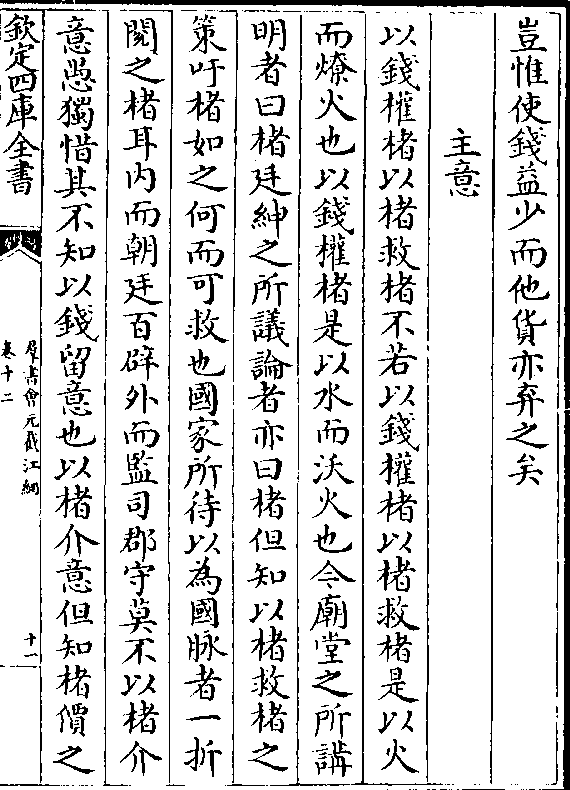 豈惟使錢益少而他貨亦弃之矣
主意
以錢權楮以楮救楮不若以錢權楮以楮救楮是以火
而燎火也以錢權楮是以水而沃火也今廟堂之所講
明者曰楮廷紳之所議論者亦曰楮但知以楮救楮之
策吁楮如之何而可救也國家所待以為國脉者一折
閱之楮耳内而朝廷百辟外而監司郡守莫不以楮介
意愚獨惜其不知以錢留意也以楮介意但知楮價之
欽定四庫全書
羣書會元截江網
卷十二
十一